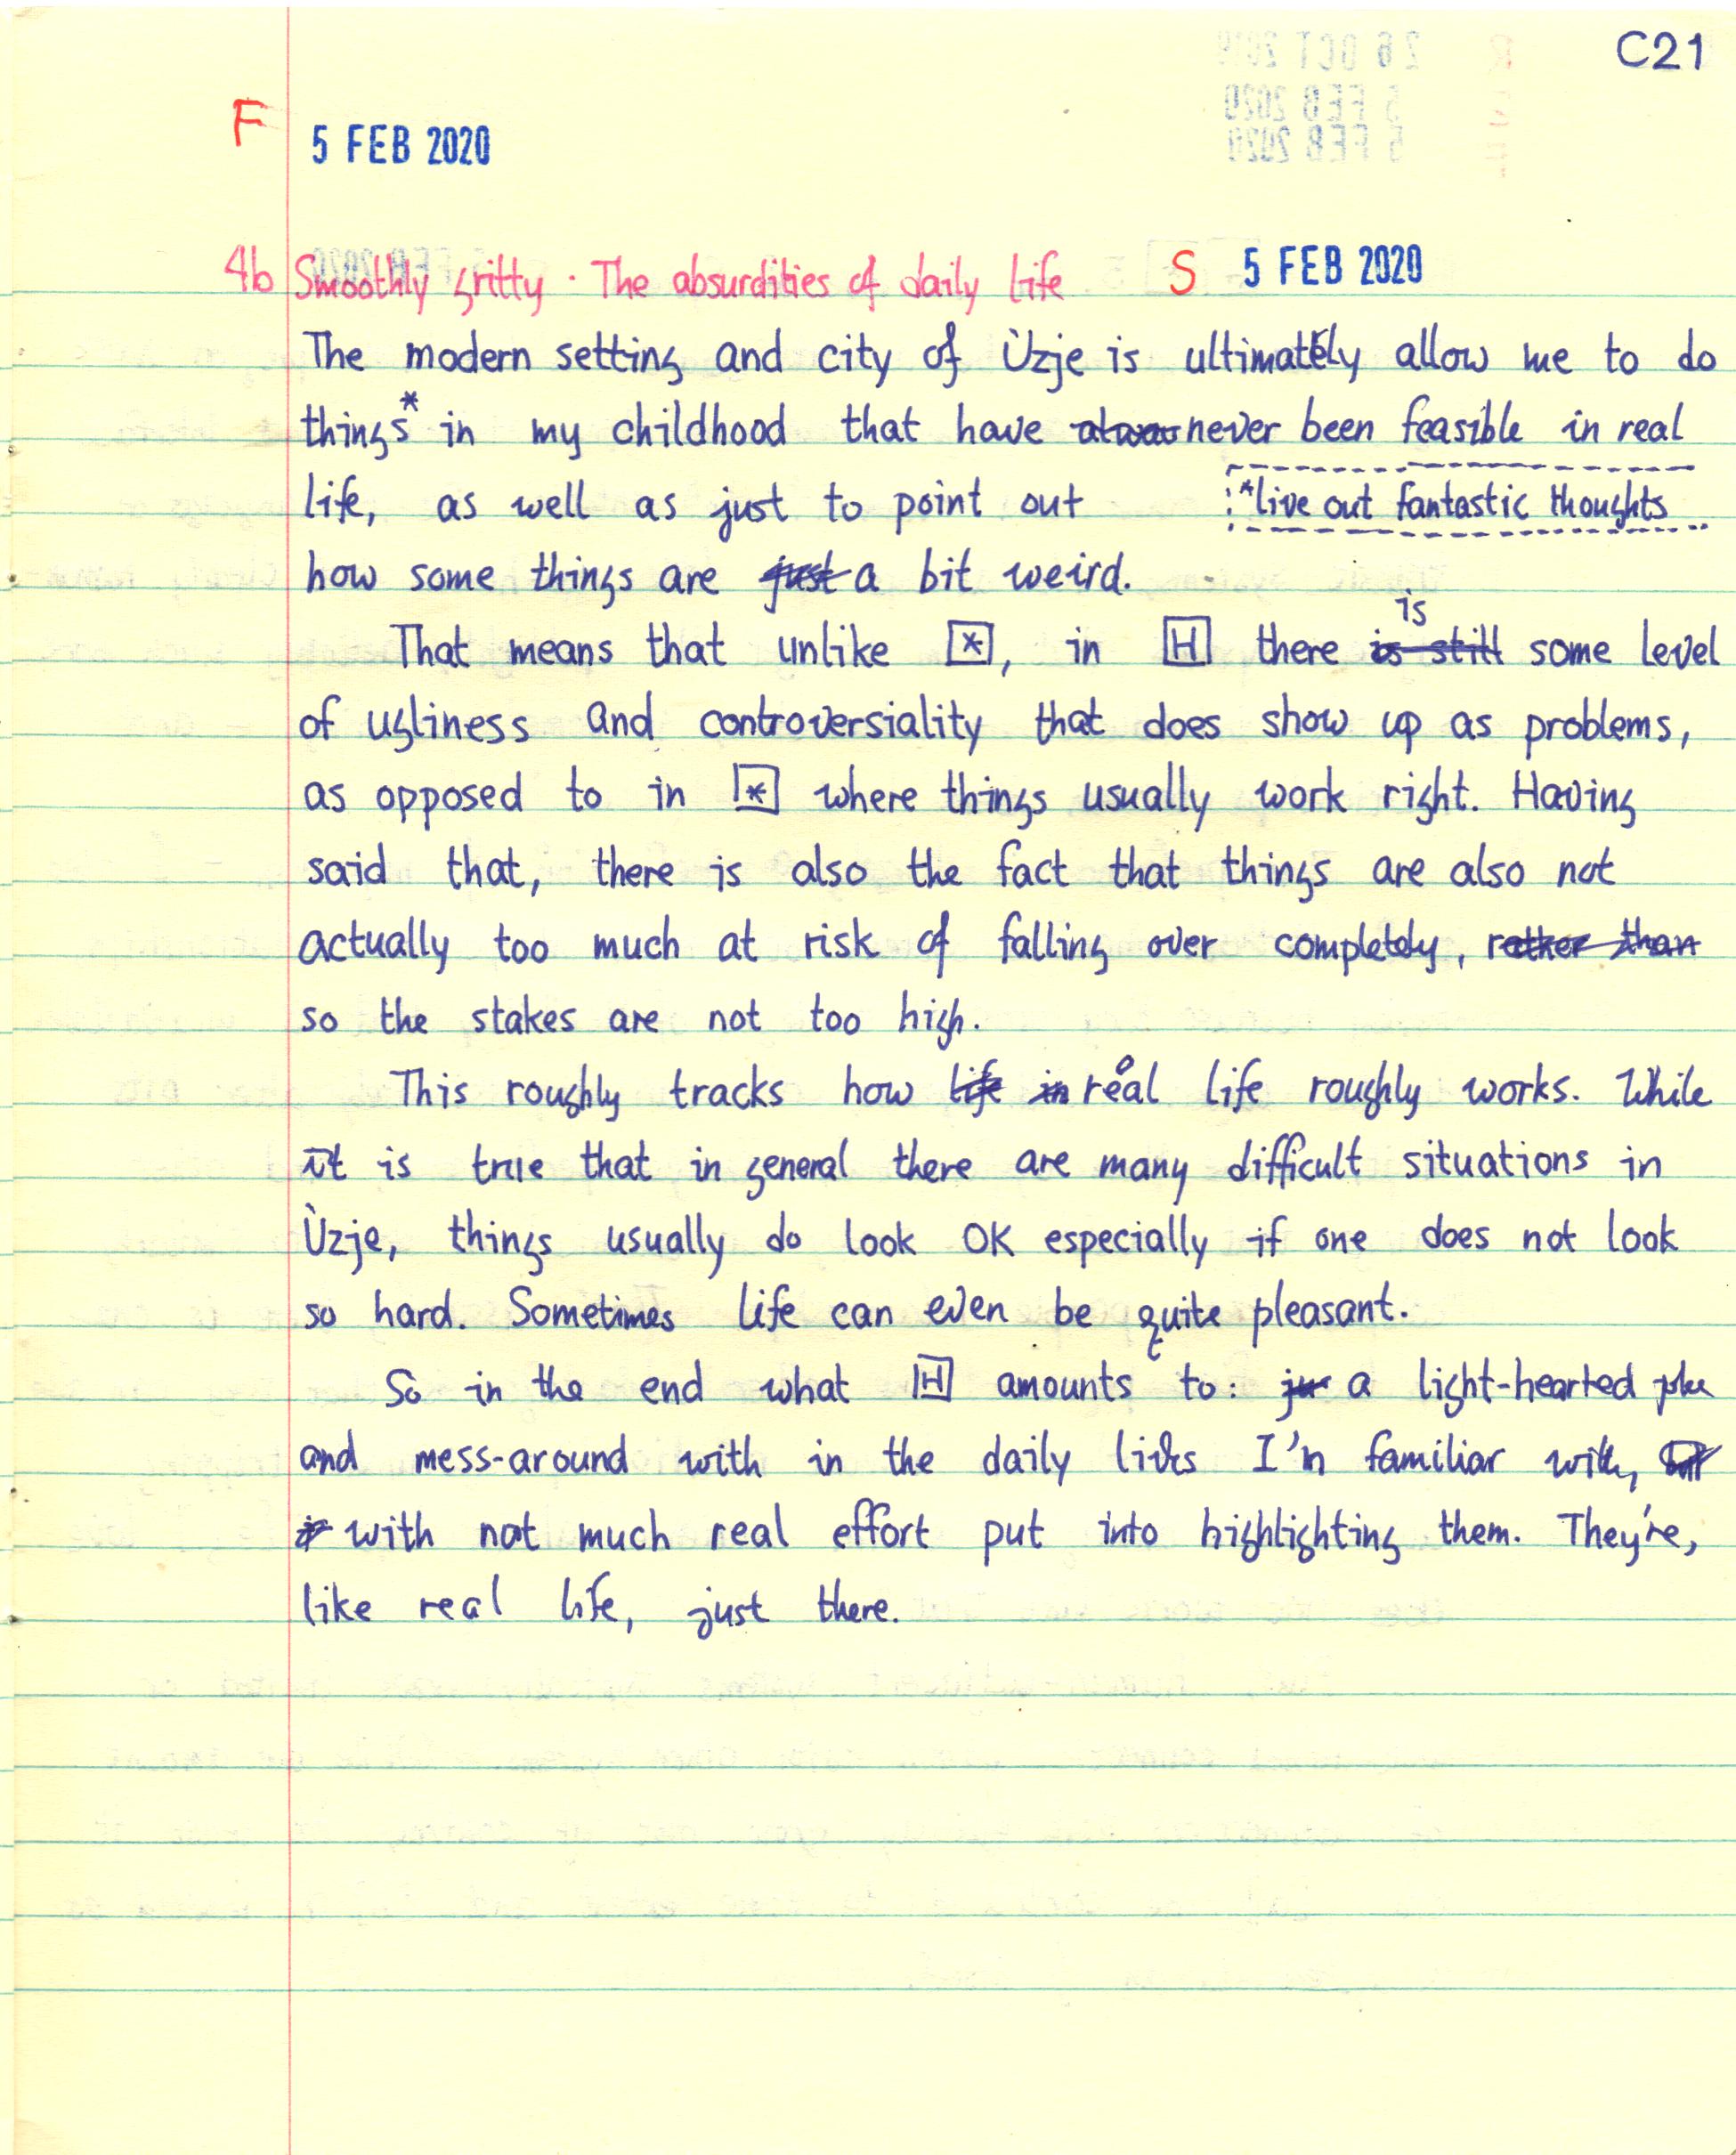 C21
F 5 FEB 2020
4b Smoothly gritty · The absurdities of daily life S 5 FEB 2020
The modern setting and city of Ùzje is ultimately allow me to do
things* in my childhood that have never been feasible in real
life, as well as just to point out
*live out fantastic thoughts
how some things are just a bit weird.
That means that unlike [*], in [H] there is still is some level
of ugliness and controversiality that does show up as problems,
as opposed to in [*] where things usually work right. Having
said that, there is also the fact that things are also not
actually too much at risk of falling over completely, rather than
so the stakes are not too high.
This roughly tracks how life in real life roughly works. While
it is true that in general there are many difficult situations in
Ùzje, things usually do look OK especially if one does not look
so hard. Sometimes life can even be quite pleasant.
So in the end what [H] amounts to: a light-hearted
and mess-around with in the daily lives I'm familiar with,
with not much real effort put into highlighting them. They're,
like real life, just there.